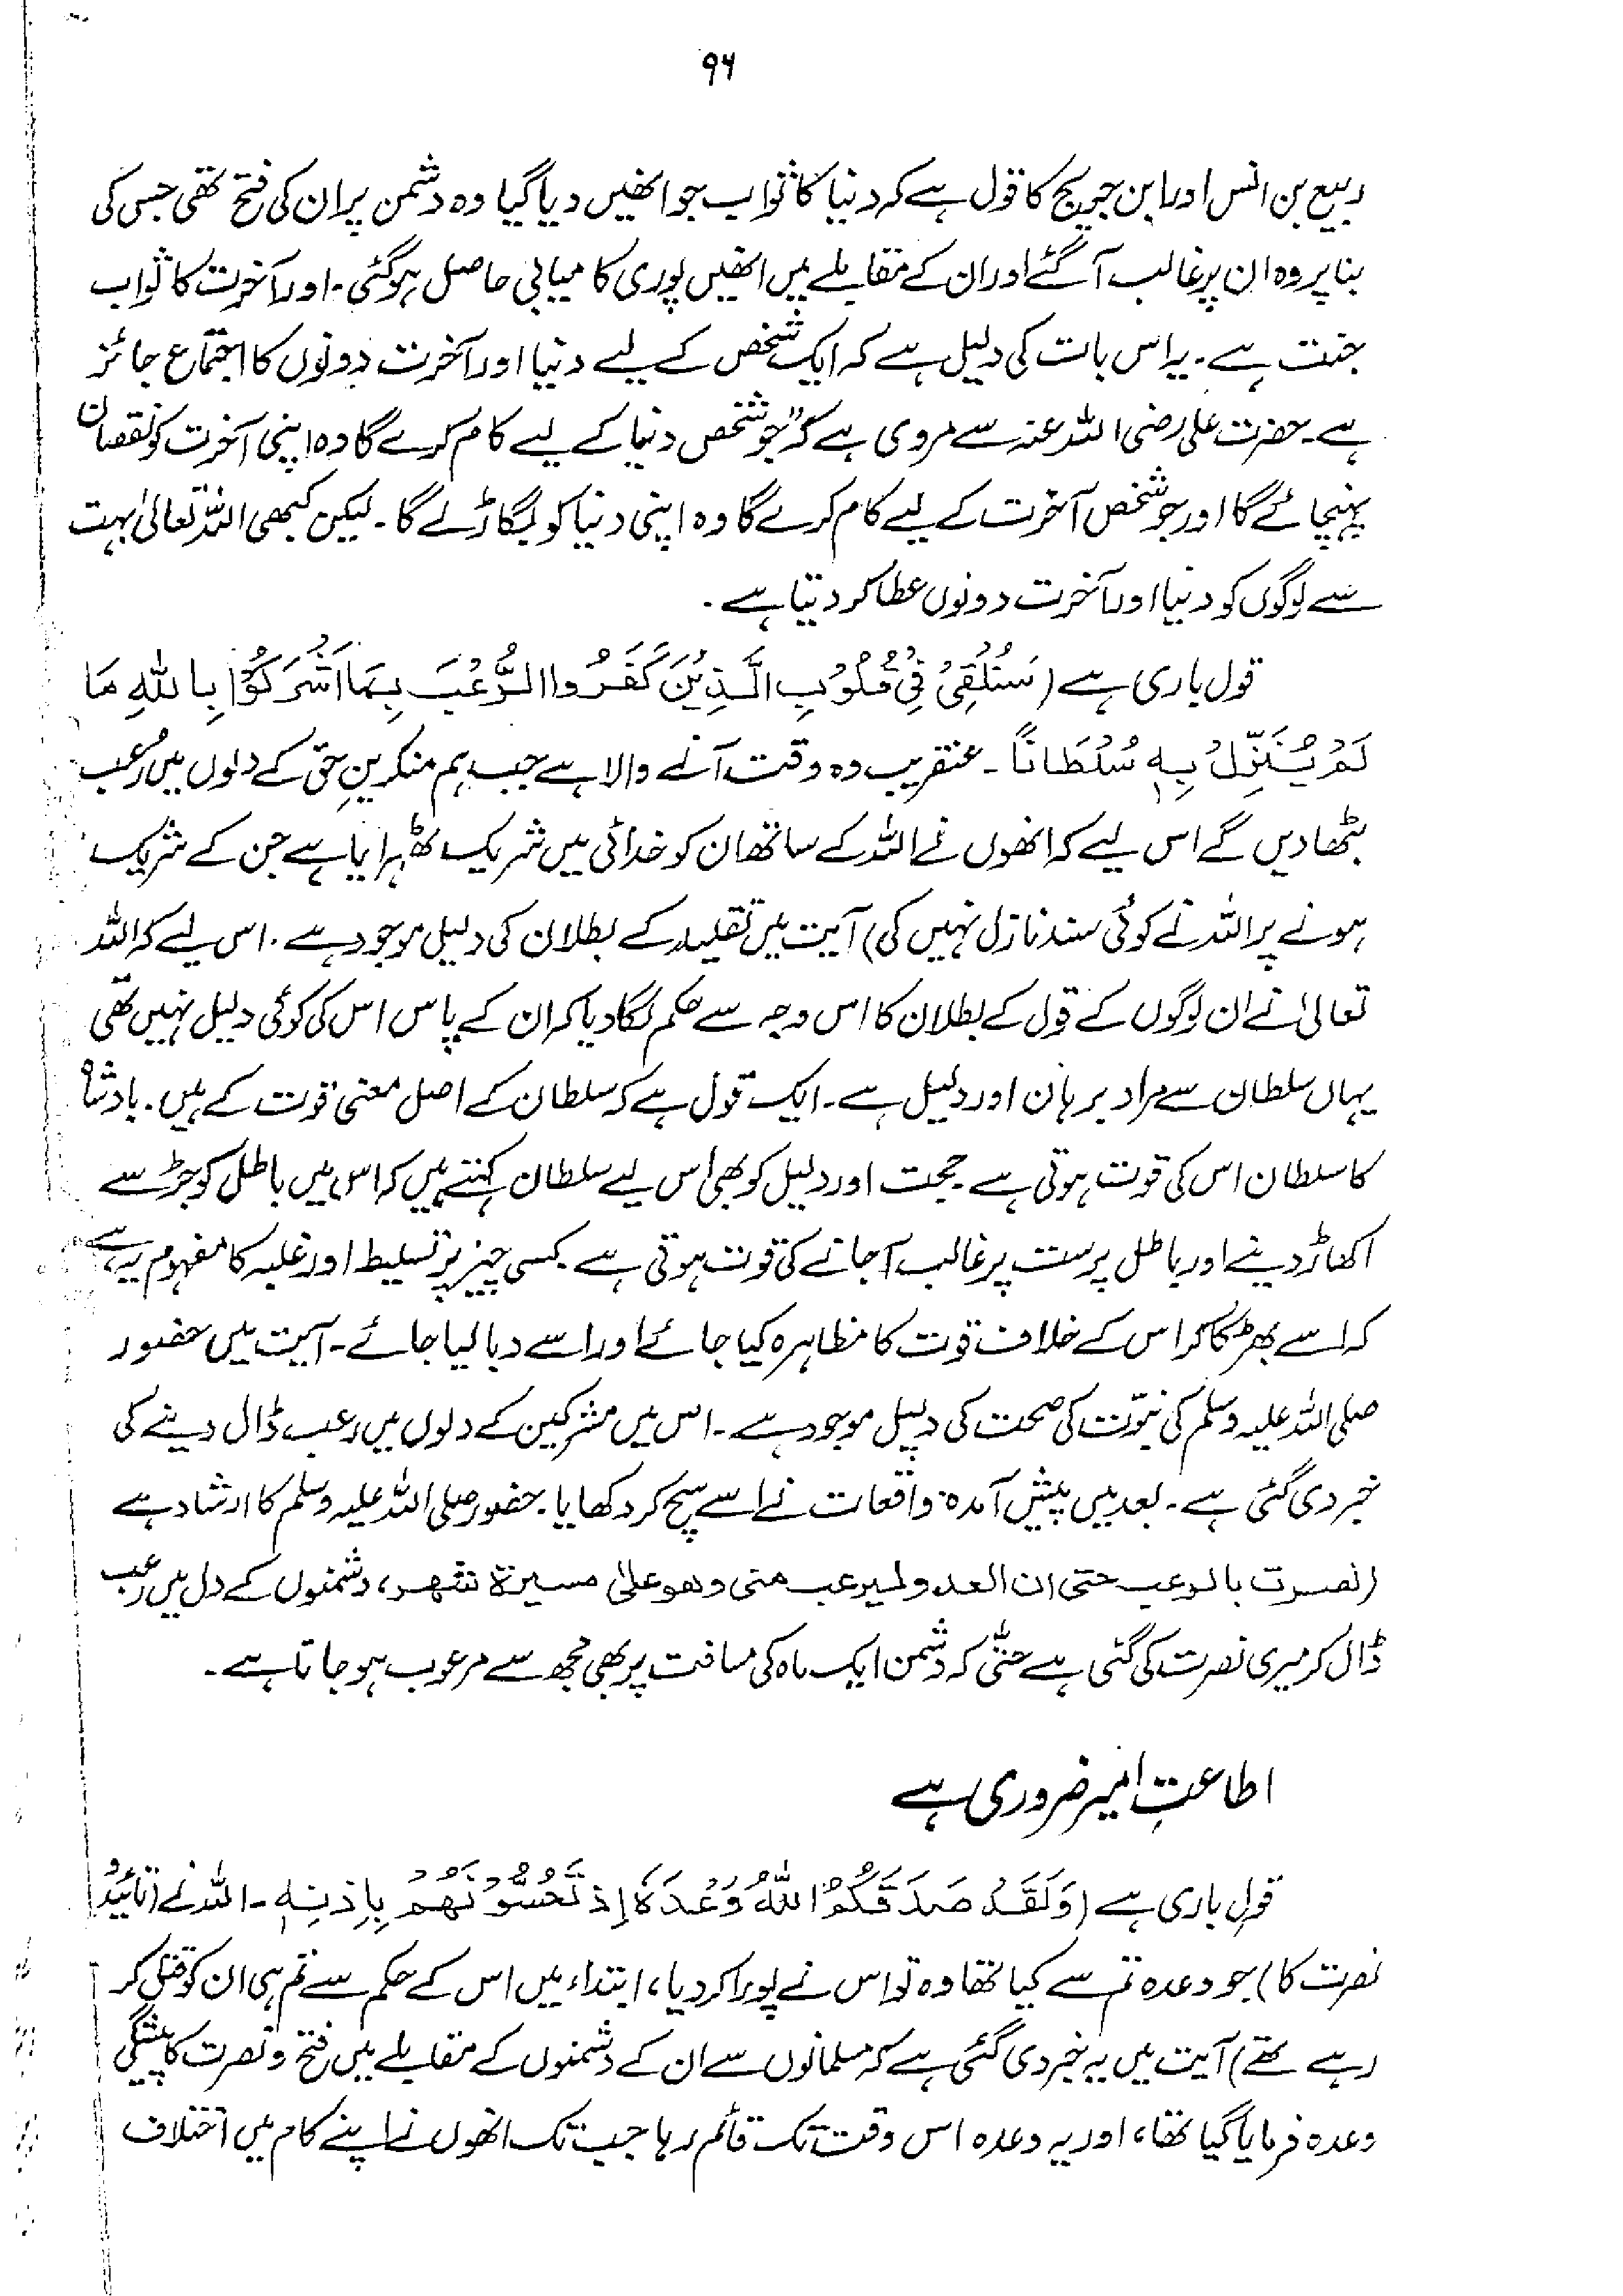 ۹۶
ربیع بن انس اور ابن جریج کا قول ہے کہ دنیا کا ثواب جو انھیں دیا گیا وہ دشمن پر ان کی فتح تھی جس کی
بنا پر وہ ان پر غالب آ گئے اور ان کے مقابلے میں انھیں پوری کامیابی حاصل ہوگئی۔ اور آخرت کا ثواب
جنت ہے۔ یہ اس بات کی دلیل ہے کہ ایک شخص کے لیے دنیا اور آخرت دونوں کا اجتماع جائز
ہے۔ حضرت علی رضی اللہ عنہ سے مروی ہے کہ "جو شخص دنیا کے لیے کام کرے گا وہ اپنی آخرت کو نقصان
پہنچائے گا اور جو شخص آخرت کے لیے کام کرے گا وہ اپنی دنیا کو بگاڑلے گا۔ لیکن کبھی اللہ تعالیٰ بہت
سے لوگوں کو دنیا اور آخرت دونوں عطا کر دیتا ہے۔
قول باری ہے (سَنُلْقِیْ فِیْ قُلُوْبِ الَّذِیْنَ کَفَرُوا الرُّعْبَ بِمَا اَشْرَکُوْا بِاللّٰهِ مَا
لَمْ یُنَزِّلْ بِہٖ سُلْطَانًا۔ عنقریب وہ وقت آنے والا ہے جب ہم منکرینِ حق کے دلوں میں رُعب
بٹھا دیں گے اس لیے کہ انھوں نے اللہ کے ساتھ ان کو خدائی میں شریک ٹھہرایا ہے جن کے شریک
ہونے پر اللہ نے کوئی سند نازل نہیں کی) آیت میں تقلید کے بطلان کی دلیل موجود ہے۔ اس لیے کہ اللہ
تعالیٰ نے ان لوگوں کے قول کے بطلان کا اس وجہ سے حکم لگا دیا کہ ان کے پاس اس کی کوئی دلیل نہیں تھی
یہاں سلطان سے مراد برہان اور دلیل ہے۔ ایک قول ہے کہ سلطان کے اصل معنی قوت کے ہیں۔ بادشاہ
کا سلطان اس کی قوت ہوتی ہے۔ حجت اور دلیل کو بھی اس لیے سلطان کہتے ہیں کہ اس میں باطل کو جڑ سے
اکھاڑ دینے اور باطل پرست پر غالب آ جانے کی قوت ہوتی ہے۔ کسی چیز پر تسلیط اور غلبہ کا مفہوم یہ ہے
کہ اسے بھڑکا کر اس کے خلاف قوت کا مظاہرہ کیا جائے اور اسے دبا لیا جائے۔ آیت میں حضور
صلی اللہ علیہ وسلم کی نبوّت کی صحت کی دلیل موجود ہے۔ اس میں مشرکین کے دلوں میں رعب ڈال دینے کی
خبر دی گئی ہے۔ بعد میں پیش آمدہ واقعات نے اسے سچ کر دکھایا۔ حضور صلی اللہ علیہ وسلم کا ارشاد ہے
(نصرت بالرعب حتی ان العدو لیرعب منی وھو علیٰ مسیرۃ شھر، دشمنوں کے دل میں رُعب
ڈال کر میری نصرت کی گئی ہے حتّٰی کہ دشمن ایک ماہ کی مسافت پر بھی مجھ سے مرعوب ہو جاتا ہے۔
اطاعتِ امیر ضروری ہے
قولِ باری ہے (وَلَقَدْ صَدَقَکُمُ اللّٰهُ وَعْدَہٗ اِذْ تَحُسُّوْنَهُمْ بِاِذْنِہٖ۔ اللہ نے (تائید و
نصرت کا) جو وعدہ تم سے کیا تھا وہ تو اس نے پورا کر دیا، ابتداء میں اس کے حکم سے تم ہی ان کو قتل کر
رہے تھے) آیت میں یہ خبر دی گئی ہے کہ مسلمانوں سے ان کے دشمنوں کے مقابلے میں فتح و نصرت کا پیشگی
وعدہ فرمایا گیا تھا، اور یہ وعدہ اس وقت تک قائم رہا جب تک انھوں نے اپنے کام میں اختلاف